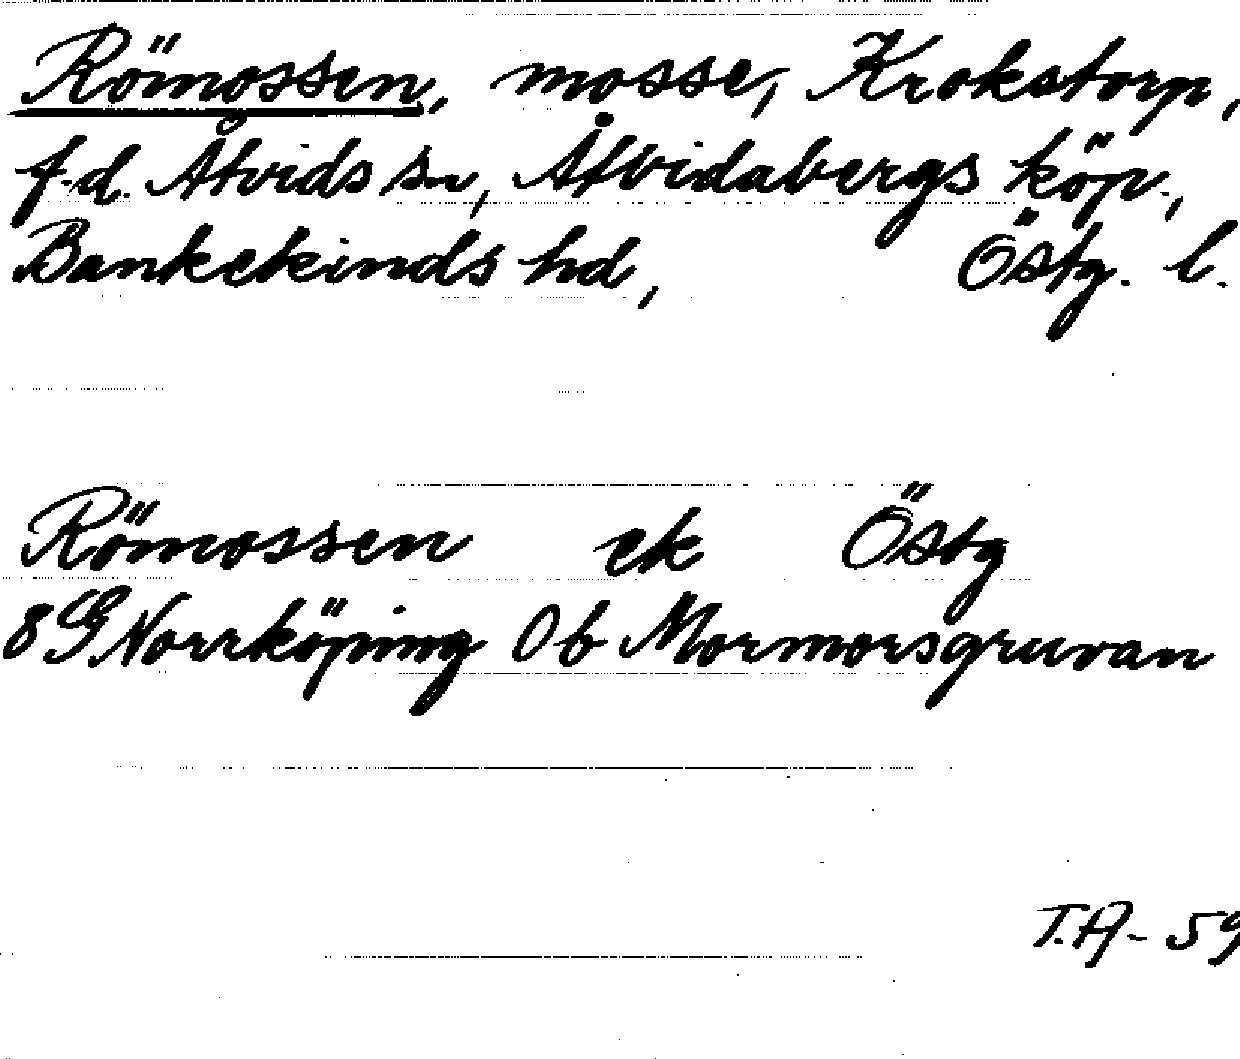 Römossen, mosse, Krokstorp,
f.d. Åtvids sn, Åtvidabergs köp.,
Bankekinds hd, Östg. l.
Römossen ek Östg
8G Norrköping 0b Mormorsgruvan
T.A- 59